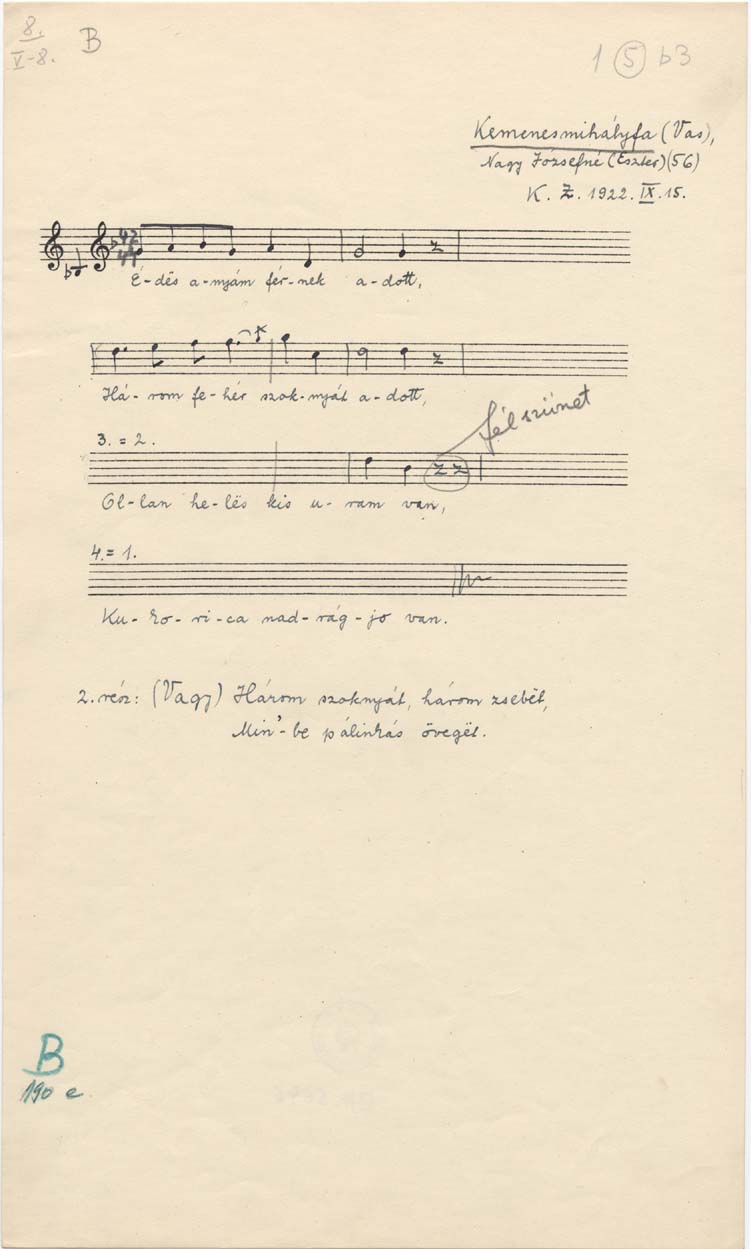 8.
V-8. B
1 5 b3
Kemenesmihályfa (Vas),
Nagy Józsefné (Eszter) (56)
K. Z. 1922. IX. 15.
É-dës a-nyám fér-nek a-dott,
Há-rom fe-hér szok-nyát a-dott,
félszünet
3. = 2.
Ol-lan he-lës kis u-ram van,
4. = 1.
Ku-ko-ri-ca nad-rág-jo van.
2. rész: (Vagy) Három szoknyát, három zsebët,
Min'-be pálinkás övegët.
B
190 e